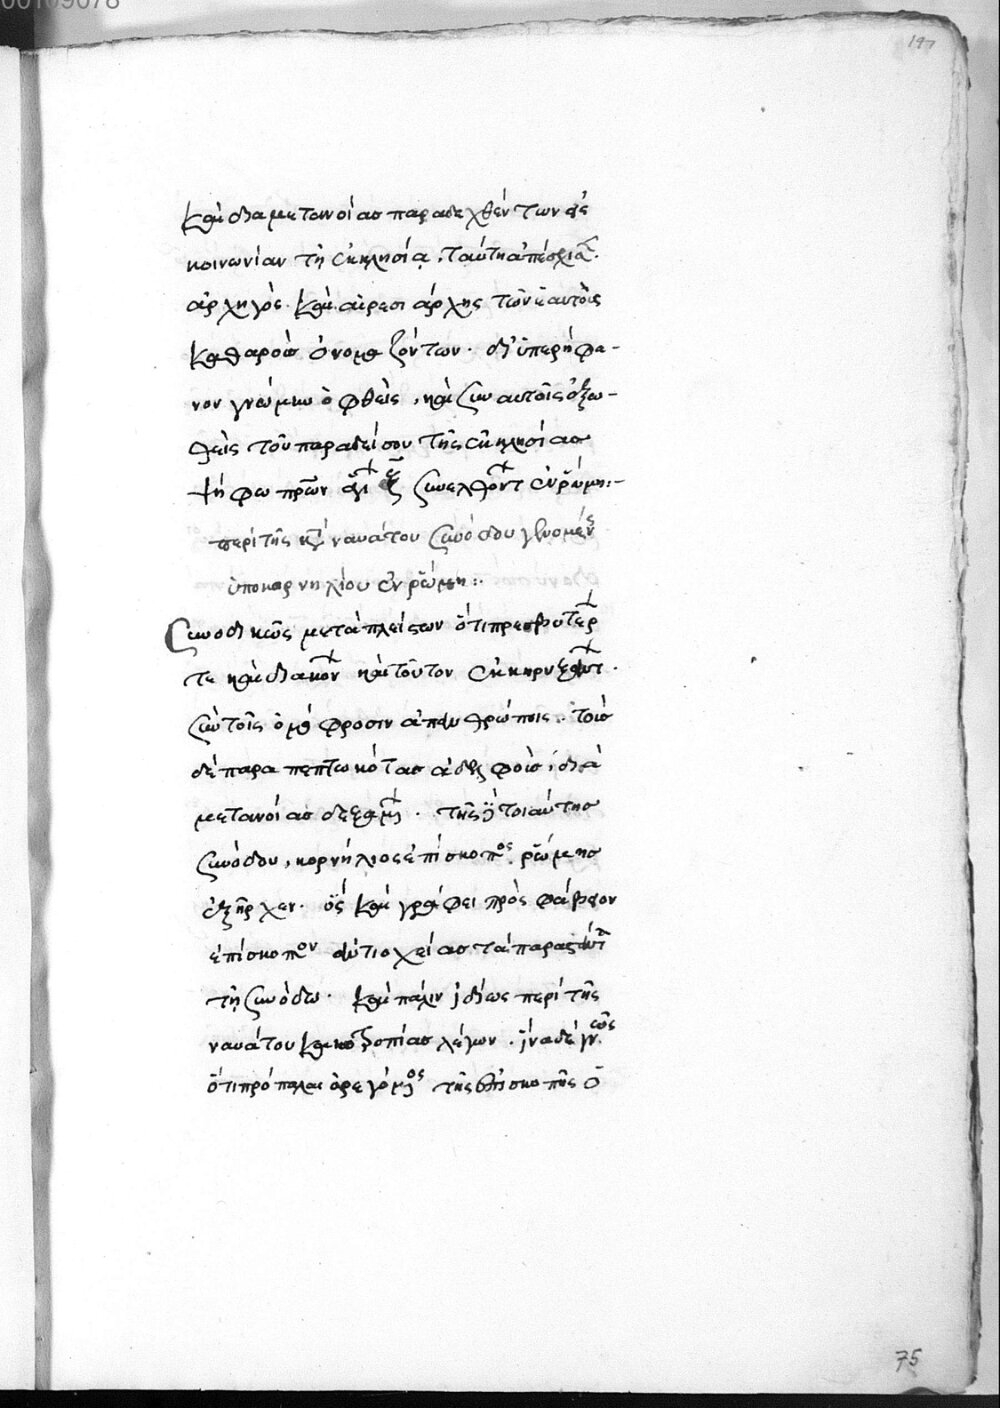 00109078
197
καὶ διὰ μετανοίας παραδεχθέντων εἰς
κοινωνίαν τῇ ἐκκλησίᾳ. ταύτη
ἀρχηγὸς καὶ αἱρεσιάρχης τῶν ἑαυτοὺς
καθαροὺς ὀνομαζόντων. δι' ὑπερήφα-
νον γνώμην ὀφθεὶς, καὶ σὺν αὐτοῖς ἐξω-
θεὶς τοῦ παραδείσου τῆς ἐκκλησίας
ψήφω πρῶν ἁγί ξ συνελθόντ ἐν ῥώμη:-
περὶ τῆς κτ ναυάτου συνόδου γενομέν
ὑπὸ κορνηλίου ἐν ῥώμη:.
Συνοδικῶς μετὰ πλείστων ὅτι πρεσβυτέρ
τε καὶ διακόν καὶ τοῦτον ἐκκηρύξαντ.
σὺν τοῖς ὁμόφροσιν ἀπανθρώποις. τοὺς
δὲ παραπεπτωκότας ἀδελφοὺς, διὰ
μετανοίας δεξαμ. τῆς τοιαύτης
συνόδου, κορνήλιος ἐπίσκοπος ῥώμης
ἐξῆρχεν. ὃς καὶ γράφει πρὸς φάβιον
ἐπίσκοπον ἀντιοχείας τὰ παραστάντ
τῇ συνόδω. καὶ πάλιν ἰδίως περὶ τῆς
ναυάτου κακοτροπίας λέγων. ἵνα δὲ γν
ὅτι πρόπαλαι ὀρεγόμος τῆς ἐπισκοπῆς ὁ
75